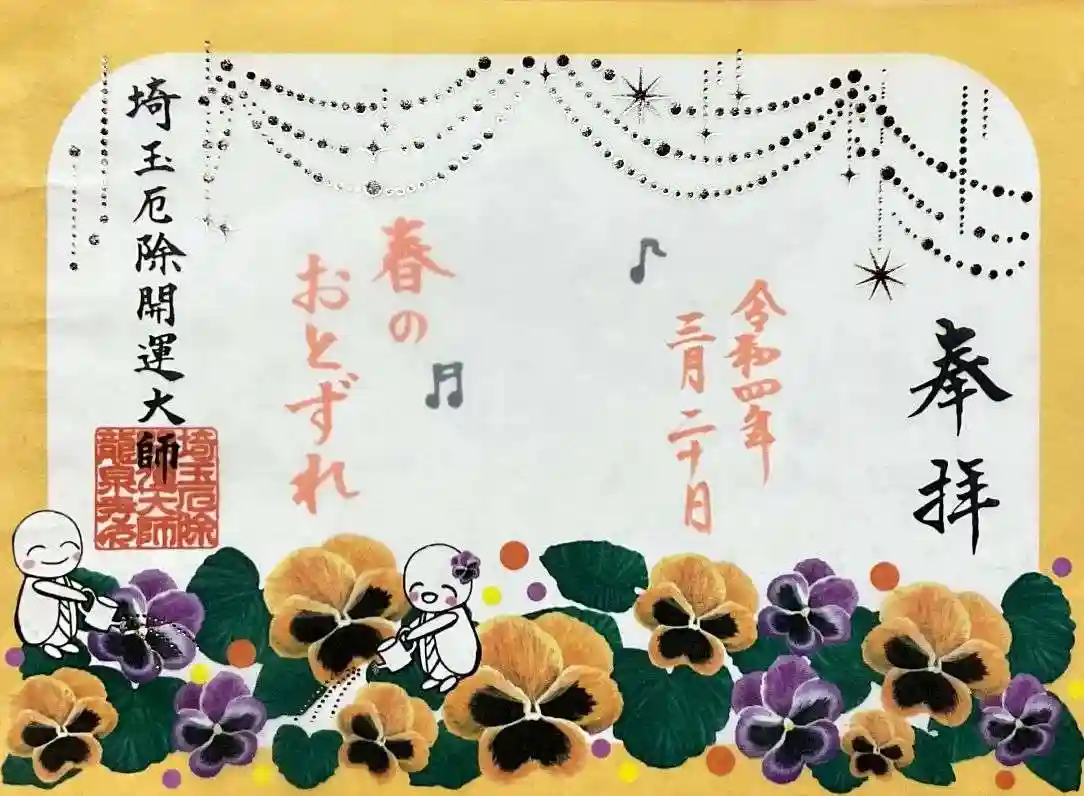 奉拝
令和四年
三月二十日
春の
おとずれ
埼玉厄除開運大師
埼玉厄除
大師
龍泉寺